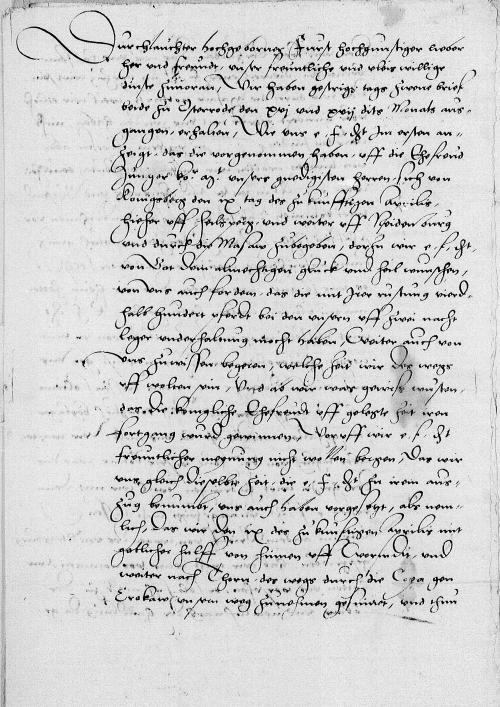 Durchlauchter hochgeborner Furst hochgunstiger lieber
her vnd freundt, vnser freuntliche vnd vleis willige
dinste zuuoran, Wir haben gestrigs tags zwene brief
beide zu Osterrode den xvj vnd xvij dits Monats aus-
gangen erhalten, Wie vns e. f. dt. Im ersten an-
zeigt, das die vorgenommen haben, vff die Ehefreud
Junger ko. mt. vnsers gnedigsten herren, sich von
Konigsberg den ix tag des zukunfftigen Aprilis
hieher vff heilsberg, vnd weiter vff Neidenburg
vnd durch die Masaw zubegeben, dorzu wir e. f. dt.
von Got dem almechtigen gluck vnd heil wunschen,
von vns auch fordern, das die mit Irer rustung vierd-
halb hundert pferdt bei den vnsern vff zwei nacht
leger vnderhaltung mocht haben, Weiter auch von
vns zuwissen begeren, welche zeit wir des wegs
vff wolten sein, Vnd ab wir was gewis wusten,
das die konigliche Ehefreudt vff gelegte zeit iren
fortgang wurd gewinnen, Woruff wir e. f. dt.
freuntlicher meynung nicht wollen bergen, Das wir
vns gleich dieselbte zeit, die e. f. dt. zu irem aus-
zug benumbt, vns auch haben vorgesetzt, als nem-
lich, das wir den ix des zukunfftigen Aprilis mit
gotlicher hulff von hinnen vff Wormdit, vnd
weiter nach Thorn, des wegs durch die Coya gen
Crokaw vnsern weg zunehmen gesinnet, vnd thun